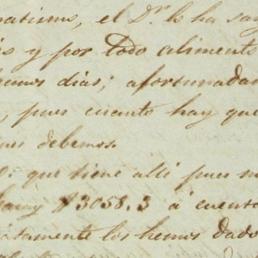 el Dr. lo ha san
y por todo alimento
hemos dias; afortunadam
, pues cuanto hay que
debemos.
que tiene alli pues m
$3058.3 á cuenta
tamente los hemos dado